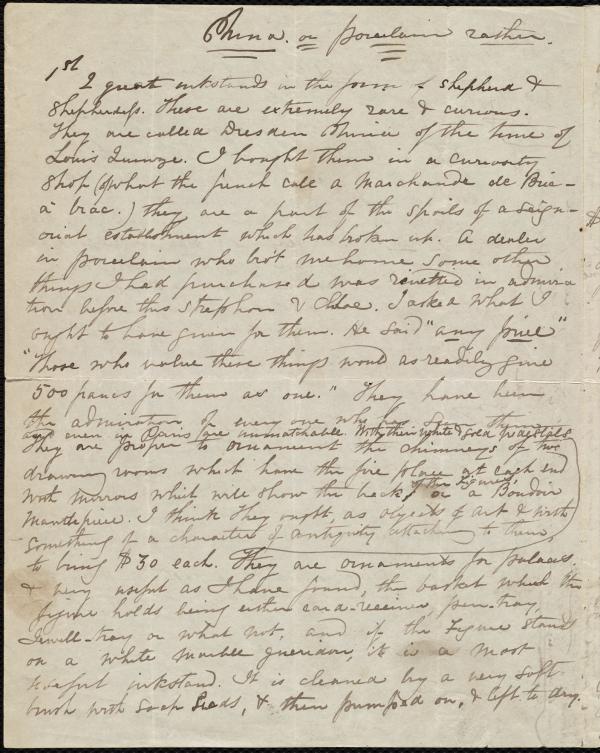 China. or porcelain rather.
1st
2 great inkstands in the form of shepherd &
Shepherdess. These are extremely rare & curious.
They are called Dresden China of the time of
Louis Quinze. I bought them in a curiosity
Shop (of what the french call a Marchande de Bric-
à brac.) they are a part of the spoils of a seign-
orial establishment which has broken up. A dealer
in porcelain who bro't me home some other
things I had purchased was rivetted in admira
tion before this Strephon & Chloe. I asked what I
ought to have given for them. He said "any price"
"Those who value these things would as readily give
500 francs for them as one." They have been
the admiration of every one who has seen them
and even in Paris are unmatchable. With their white & gold pedestals
They are proper to ornament the chimneys of two
drawing rooms which have the fire place at each end
with mirrors which will show the back of the figures or a Boudoir
Mantlepiece. I think they ought, as objects of art & with
something of a character of antiquity attaching to them,
to bring $30 each. They are ornaments for palaces
& very useful as I have found, the basket which the
figure holds being either card-receiver, pen-tray,
Jewell-tray or what not, and if the Figure stand
on a white marble gueridon, it is a most
useful inkstand. It is cleaned by a very soft
brush with Soap Suds, & then pumped on, & left to dry.